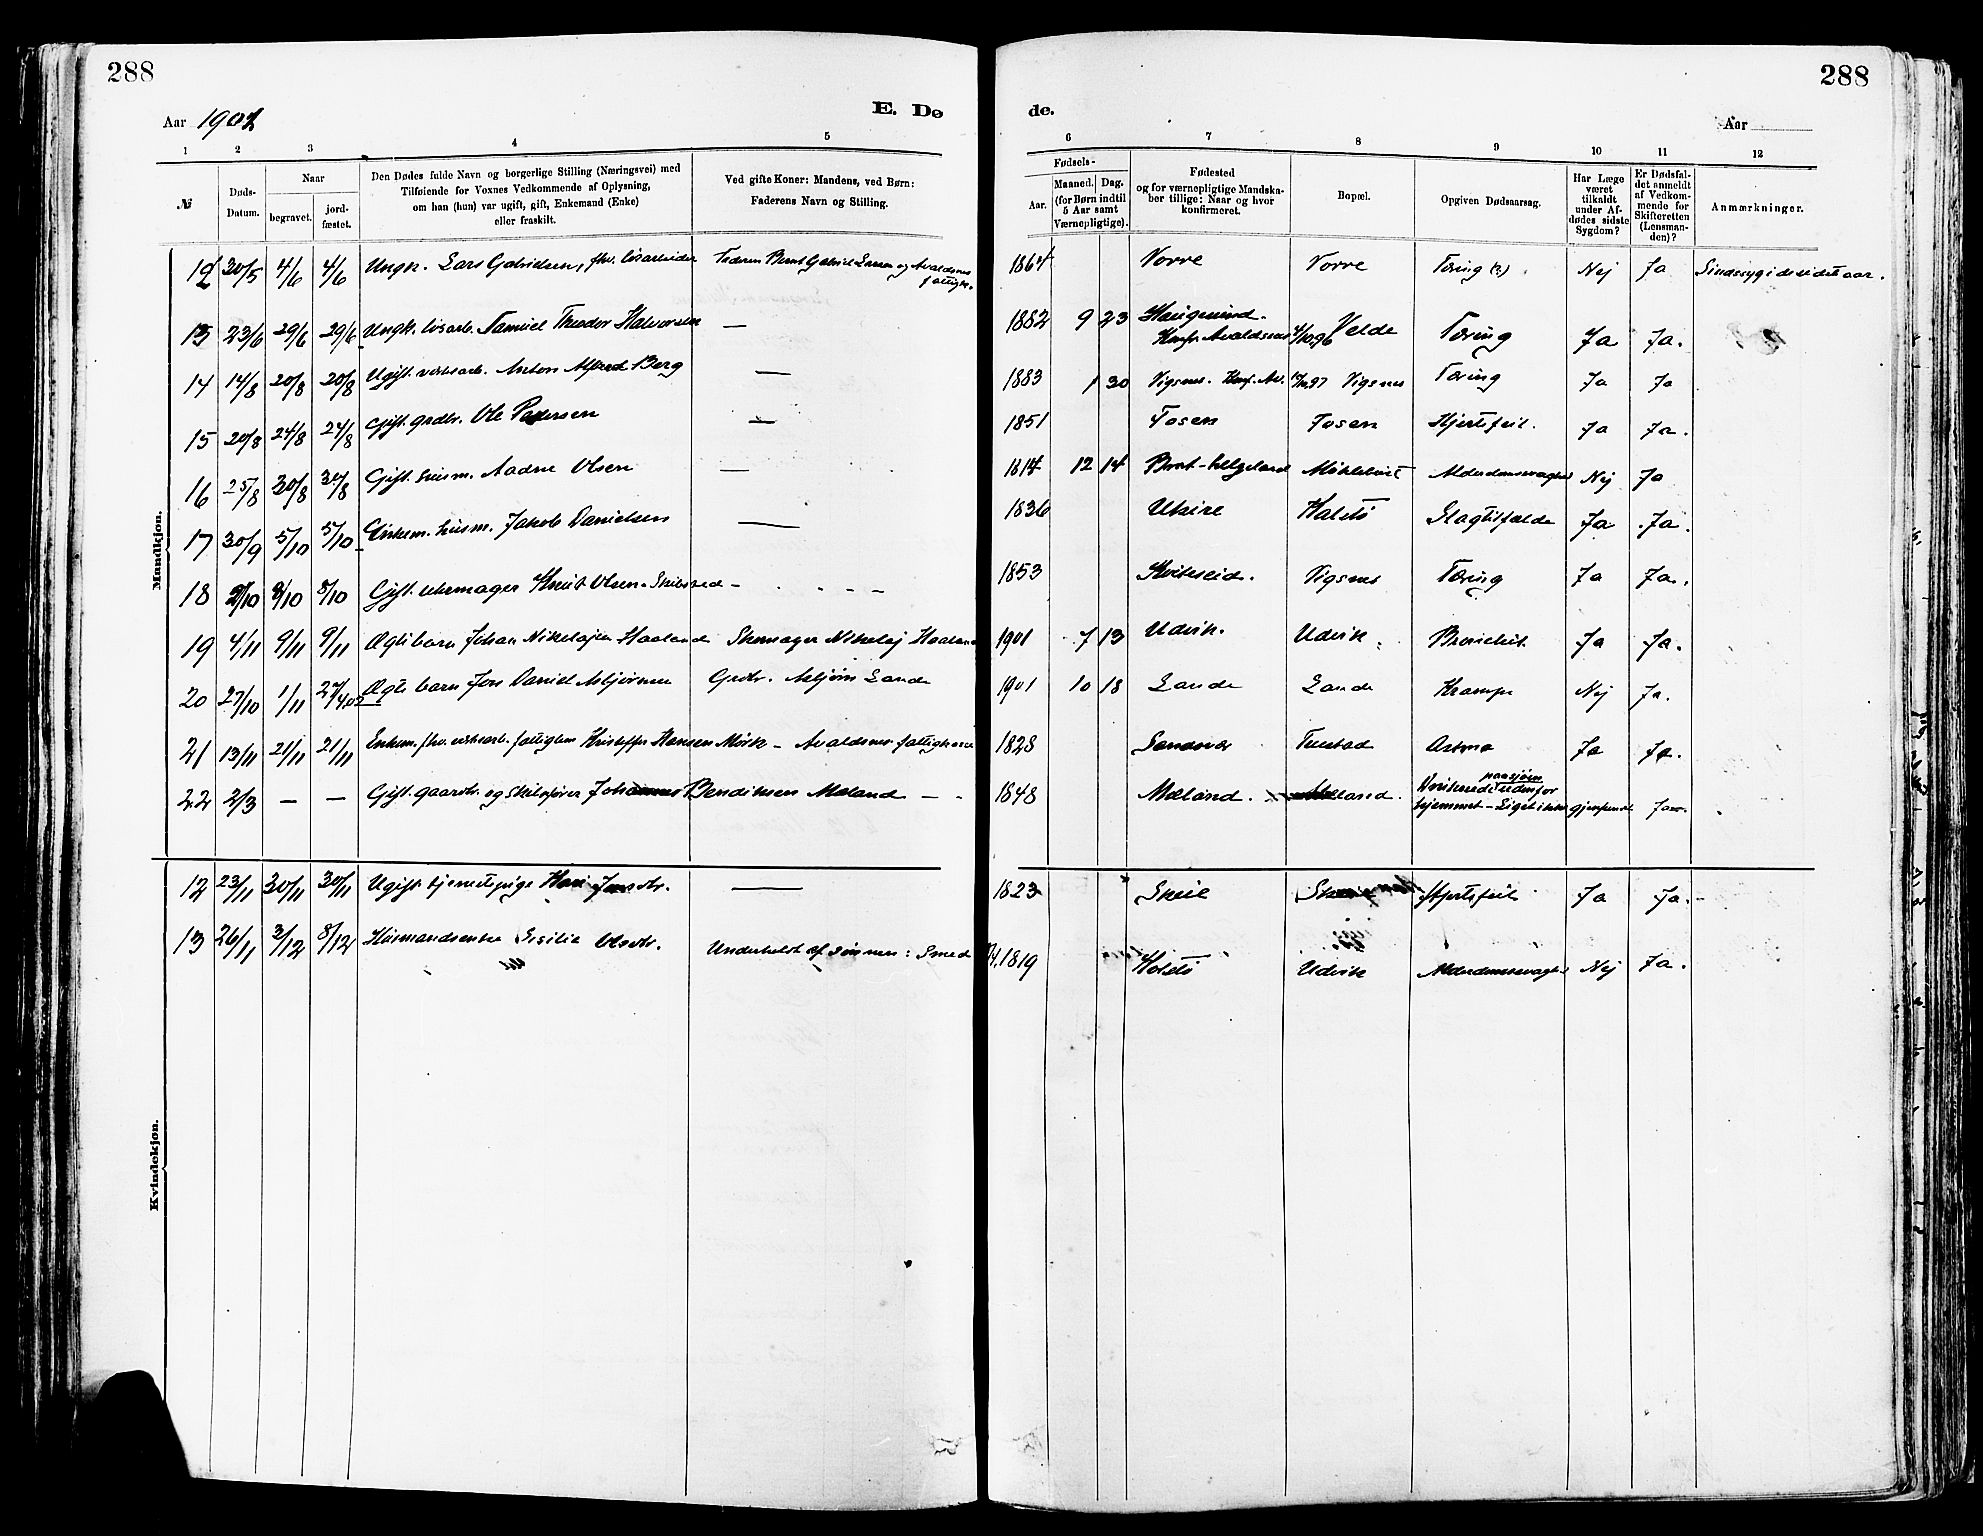 288
288
Aar 1902
E. Dø
de.
Aar
1 2 3 4 5 6 7 8 9 10 11 12
№
Døds-
Datum.
Naar
begravet.
jord-
fæstet.
Den Dødes fulde Navn og borgerlige Stilling (Næringsvei) med
Tilføiende for Voxnes Vedkommende af Oplysning,
om han (hun) var ugift, gift, Enkemand (Enke)
eller fraskilt.
Ved gifte Koner: Mandens, ved Børn:
Faderens Navn og Stilling.
Fødsels-
Aar.
Maaned.
Dag.
(for Børn indtil
5 Aar samt
Værnepligtige).
Fødested
og for værnepligtige Mandska-
ber tillige: Naar og hvor
konfirmeret.
Bopæl.
Opgiven Dødsaarsag.
Har Læge
været
tilkaldt
under Af-
dødes sidste
Sygdom?
Er Dødsfal-
det anmeldt
af Vedkom-
mende for
Skifteretten
(Lensman-
den)?
Anmærkninger.
Mandkjøn.
12 30/5 4/6 4/6 Ungk. Lars Gabrielsen, fhv. løsarbeider Faderen Bernt Gabriel Larsen og Avaldsnes fattigk. 1864 Vorre Vorre Tæring (?) Nej Ja Sindssyg i de sidste aar.
13 23/6 29/6 29/6 Ungk. løsarb. Samuel Theodor Halvorsen — 1882 9 23 Haugesund. Konf. Avaldsnes 4/10 96 Velde Tæring Ja Ja.
14 14/8 20/8 20/8 Ugift. verksarb. Anton Alfred Berg — 1883 1 30 Vigsnes. Konf. Av. 97 Vigsnes Tæring Ja Ja
15 20/8 24/8 24/8 Gift. grdbr. Ole Pedersen — 1851 Fosen Fosen Hjertefeil. Ja Ja.
16 25/8 30/8 30/8 Gift. husm. Aadne Olsen — 1814 12 14 Møklebust Alderdomssvaghed Nej Ja
17 30/9 5/10 5/10 Enkem. husm. Jakob Danielsen — 1836 Utsire Halstø Slagtilfælde Ja Ja.
18 2/10 8/10 8/10 Gift. uhrmager Knut Olsen Skibsted — 1853 Kviteseid. Vigsnes Tæring Ja Ja.
19 4/11 9/11 9/11 Ægte barn Johan Nikolajsen Haaland Skomager Nikolaj Haaland 1901 7 13 Udvik. Udvik Bronchit Ja Ja.
20 27/10 1/11 27/4.02 Ægte barn Jon Daniel Asbjørnsen Grdbr. Asbjørn Sande 1901 10 18 Sande Sande Krampe Nej Ja.
21 13/11 21/11 21/11 Enkem. fhv. verksarb. fattiglem Kristoffer Hansen Mørk — Avaldsnes fattigkasse 1828 Sandsvær Tuastad Astma Ja Ja.
22 2/3 — — Gift. gaardbr. og skibsfører Johannes Bendiksen Mæland — 1848 Mæland. Mæland. udenfor hjemmet — Liget ikke gjenfundet Ja.
Kvindekjøn.
12 23/11 30/11 30/11 Ugift tjenestepige Jonsdtr. — 1823 Skeie Skeie Hjertefeil Ja Ja.
13 26/11 3/12 8/12 Husmandsenke Sesilie Olsdtr. Underholdt af sønnen: Smed 1819 Holstø Udvik Alderdomssvaghed Nej Ja.